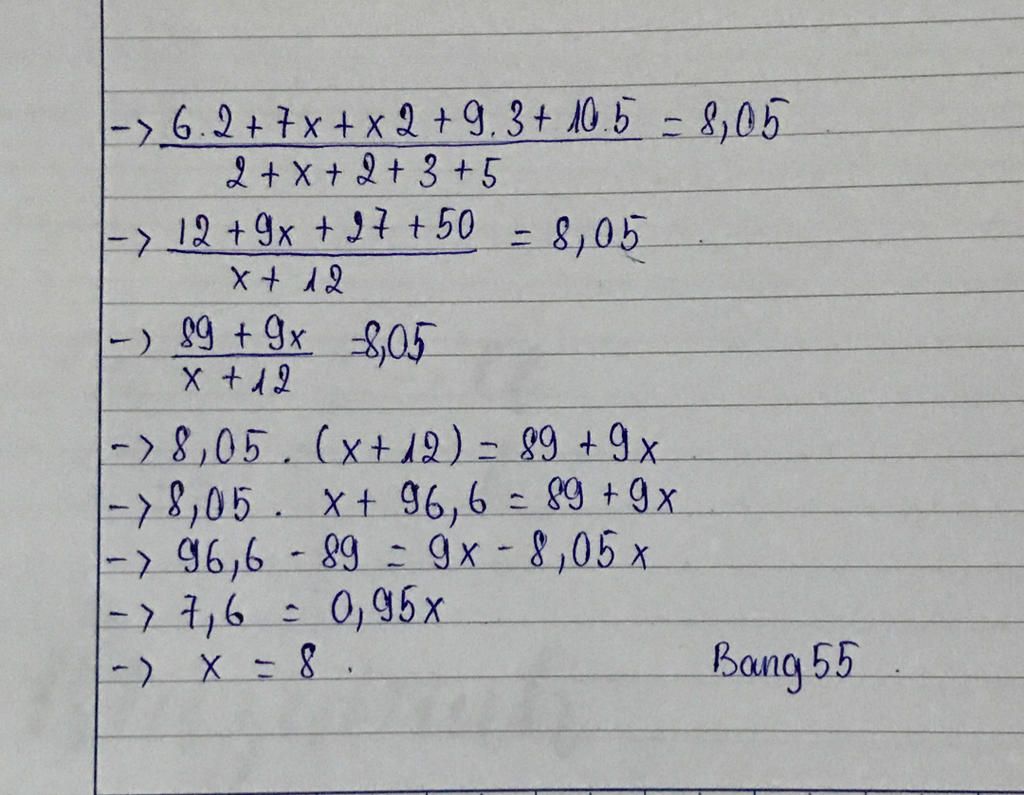 -> 6.2 + 7x + x2 + 9.3 + 10.5 = 8,05
2 + x + 2 + 3 + 5
-> 12 + 9x + 27 + 50 = 8,05
x + 12
-> 89 + 9x = 8,05
x + 12
-> 8,05 . (x + 12) = 89 + 9x
-> 8,05 . x + 96,6 = 89 + 9x
-> 96,6 - 89 = 9x - 8,05x
-> 7,6 = 0,95x
-> x = 8 . Bang55